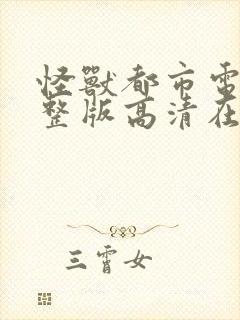 怪獸都市電
整版高清在
三霄女